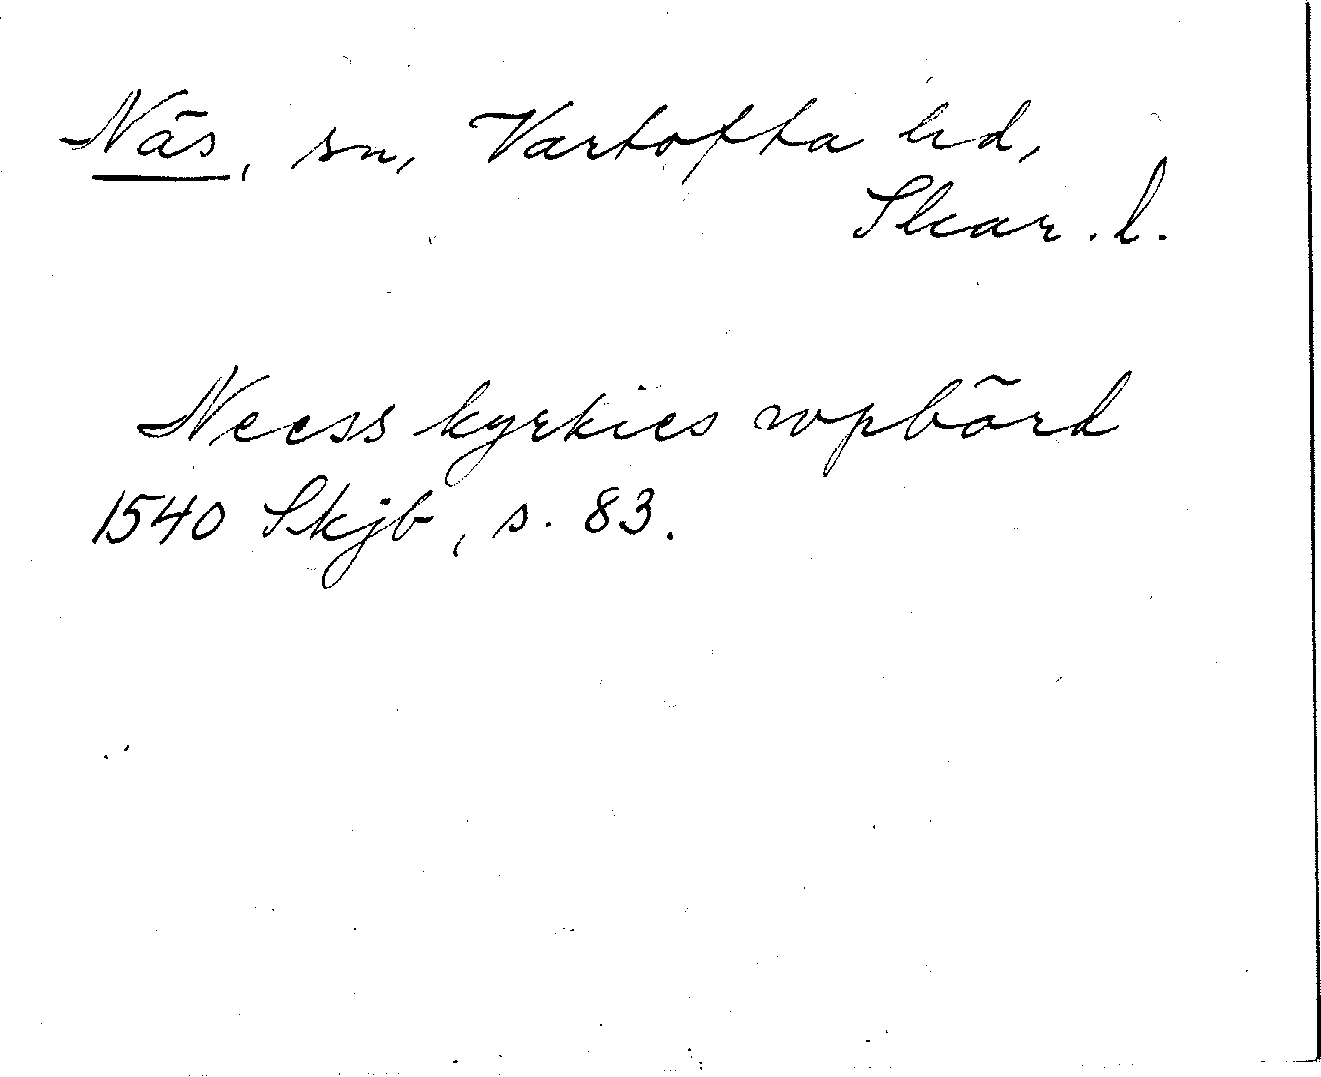 Näs, sn, Vartofta hd,
Skar. l.
Neess kyrkies wpbörd
1540 Skjb, s. 83.